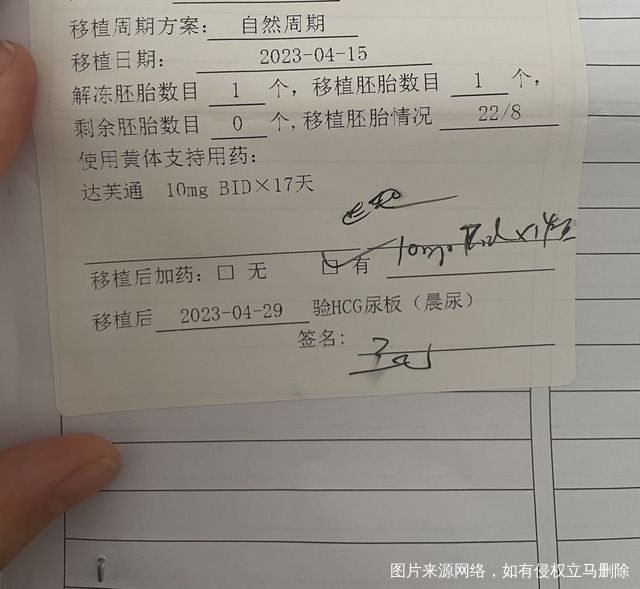 移植周期方案：自然周期
移植日期：2023-04-15
解冻胚胎数目 1 个，移植胚胎数目 1 个，
剩余胚胎数目 0 个,移植胚胎情况 22/8
使用黄体支持用药：
达芙通 10mg BID×17天
移植后加药：□ 无 ☑ 有 10mg Bid ×14天
移植后 2023-04-29 验HCG尿板（晨尿）
签名：
图片来源网络，如有侵权立马删除